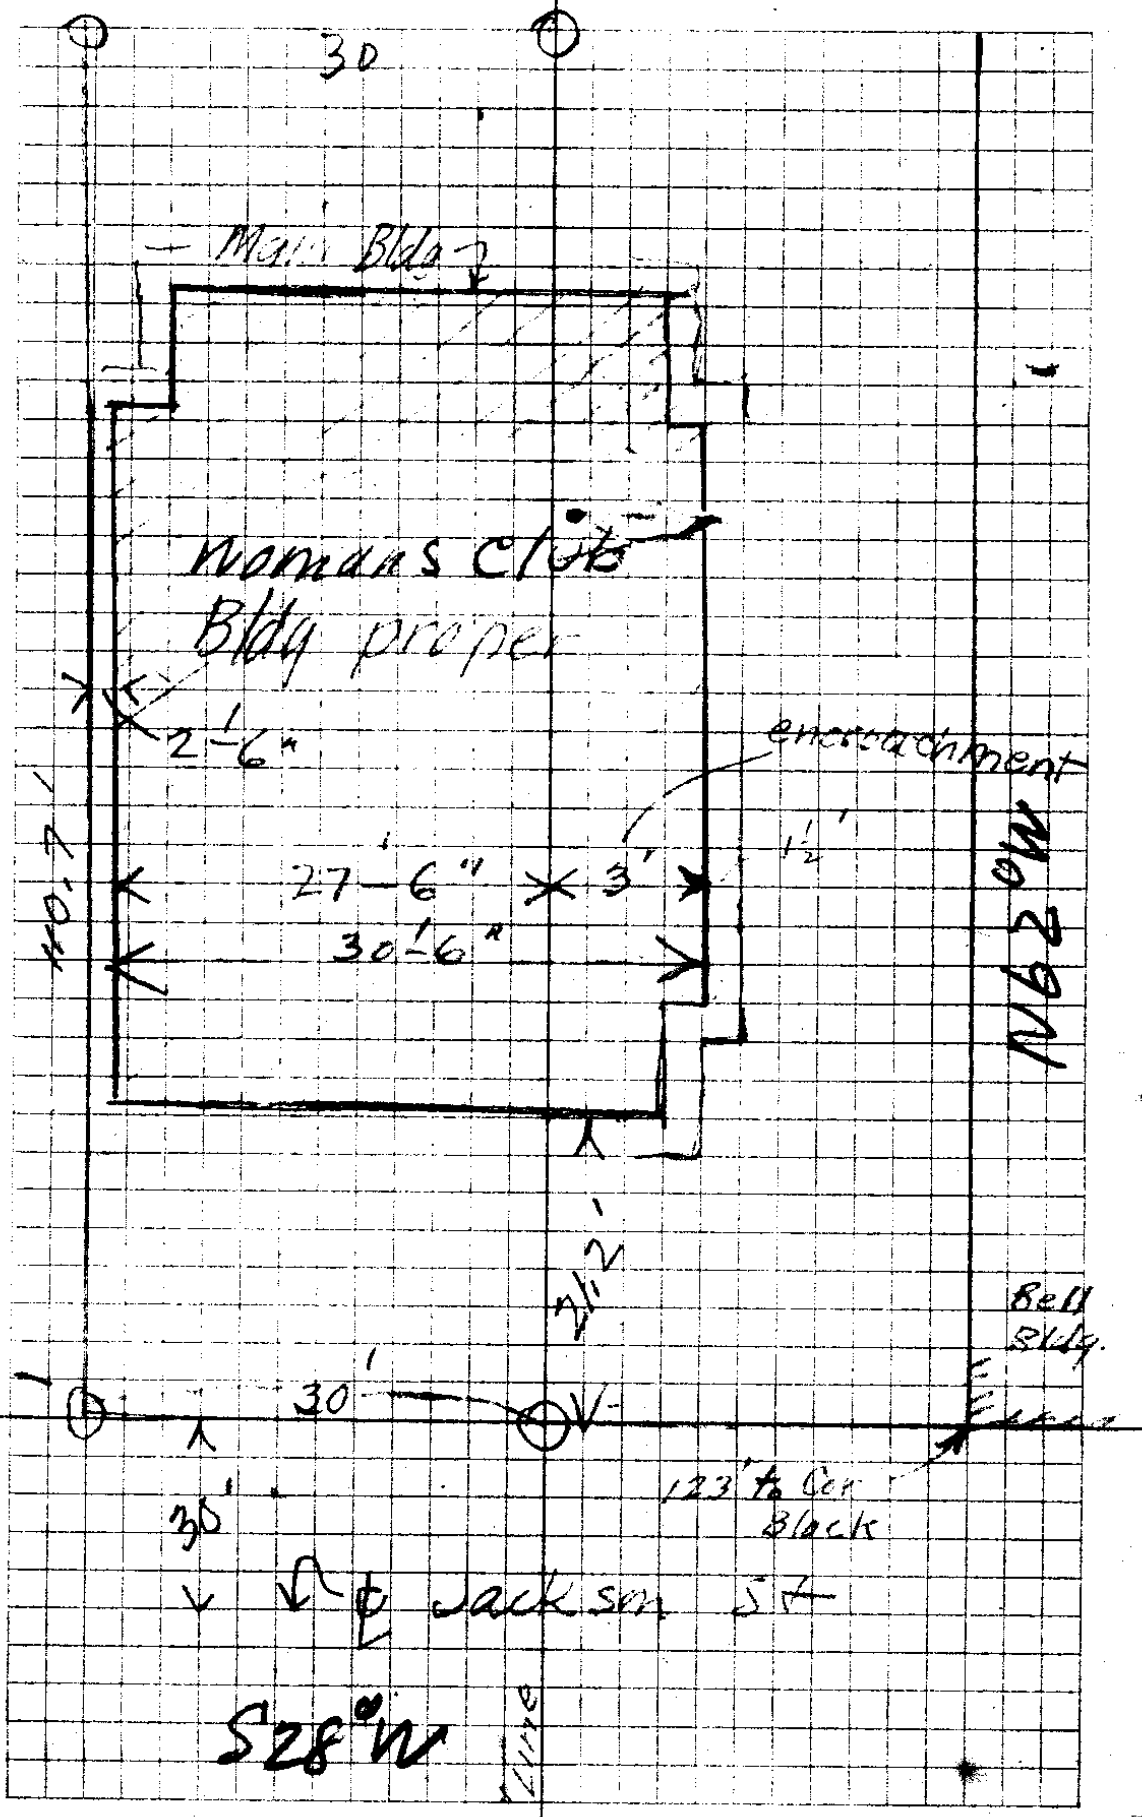 30
Main Bldg
Womans Club
Bldg proper
2'-6"
encroachment
1½'
27'-6"
3'
30'-6"
40.7'
N62°W
21.2'
Bell
Bldg.
30'
123' to Cor
Block
30'
℄ Jackson St
S28°W
Line